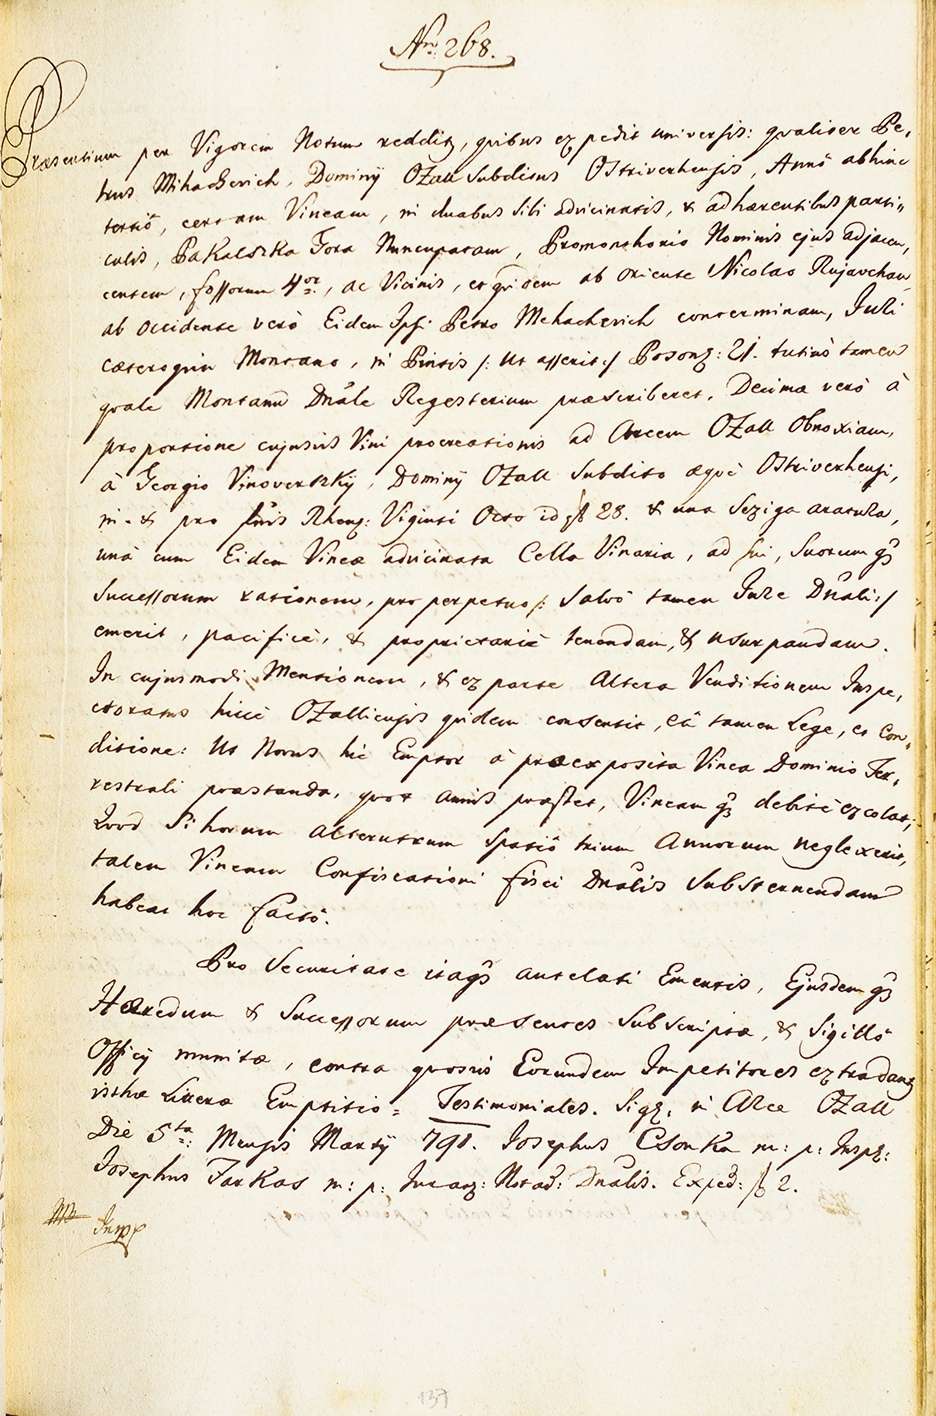 Nro 268.
Præsentium per Vigorem Notum redditz, quibus expedit universis: qvaliter Pe,
trus Mihacherich, Dominÿ Ozall Subditus Ostriverhensis, Annô abhinc
tertiô, certam Vineam, in duabus sibi advicinatis, & adhærentibus parti„
culis, Pakalszka Gora Nuncupatam, Promonthorio Nominis ejus adjacen,
centem, fossorum 4or, ac Vicinis, et qvidem ab oriente Nicolao Rujavchan
ab occidente verò Eidem Ipsi Petro Mehacherich conterminam, Juli
cæteroquin Montano, in Pintis /: Ut asserit :/ Posonz: 21. tutius tamen
qvale Montanū Dnāle Regesterium præscriberet, Decimæ verò à
proportione cujusvis Vini procreationis ad Arcem Ozall Obnoxiam,
à Georgio Vinoverszkÿ, Dominÿ Ozall Subdito æqvè Ostriverhensi,
in & pro flnis Rhenz: Viginti Octo id f 28. & una Seziga aratura,
unà cum Eidem Vineæ advicinata Cella Vinaria, ad sui, suorumqȝ
Successorum rationem, pro perpetuo /: Salvô tamen Jure Dnāli :/
emerit, pacificè, & proprietariè tenendam, & usurpandam.
In cujusmodi Mentionem, & ex parte Altera Venditionem Inspe,
ctoratus hicce Ozalliensis qvidem consentit, eâ tamen Lege, et Con„
ditione: Ut Novus hic Emptor à præexposita Vinea Dominio Ter„
restrali præstanda, quot annis præstet, Vineamqȝ debitè excolat;
Qvod Si horum alterutrum Spatiô trium Annorum neglexerit,
talem Vineam Confiscationi fisci Dnālis Substernendam
habeat hoc factô.
Pro Securitate itaqȝ antelati Ementis, Ejusdemqȝ
Hæredum & Successorum præsentes Subscriptæ, & Sigillô
Officÿ munitæ, contra quosvis Eorundem Impetitores extradanz
isthæ Litteræ Emptitio= Testimoniales. Sigz: in Arce Ozall
Die 5ta Mensis Martÿ 791. Josephus Csonka m: p: Inspz:
Josephus Farkas m: p: Juratz: Notař: Dnālis. Exped: f 2.
Insp
137